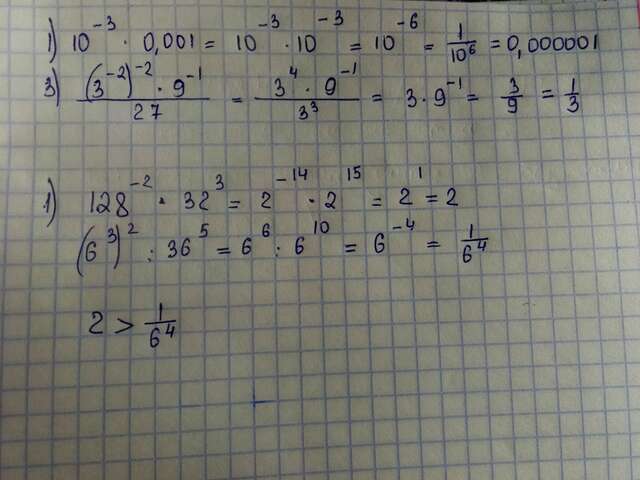 1) 10⁻³ · 0,001 = 10⁻³ · 10⁻³ = 10⁻⁶ = 1/10⁶ = 0,000001
3) (3⁻²)⁻² · 9⁻¹ / 27 = 3⁴ · 9⁻¹ / 3³ = 3 · 9⁻¹ = 3/9 = 1/3
1) 128⁻² · 32³ = 2⁻¹⁴ · 2¹⁵ = 2¹ = 2
(6³)² : 36⁵ = 6⁶ : 6¹⁰ = 6⁻⁴ = 1/6⁴
2 > 1/6⁴